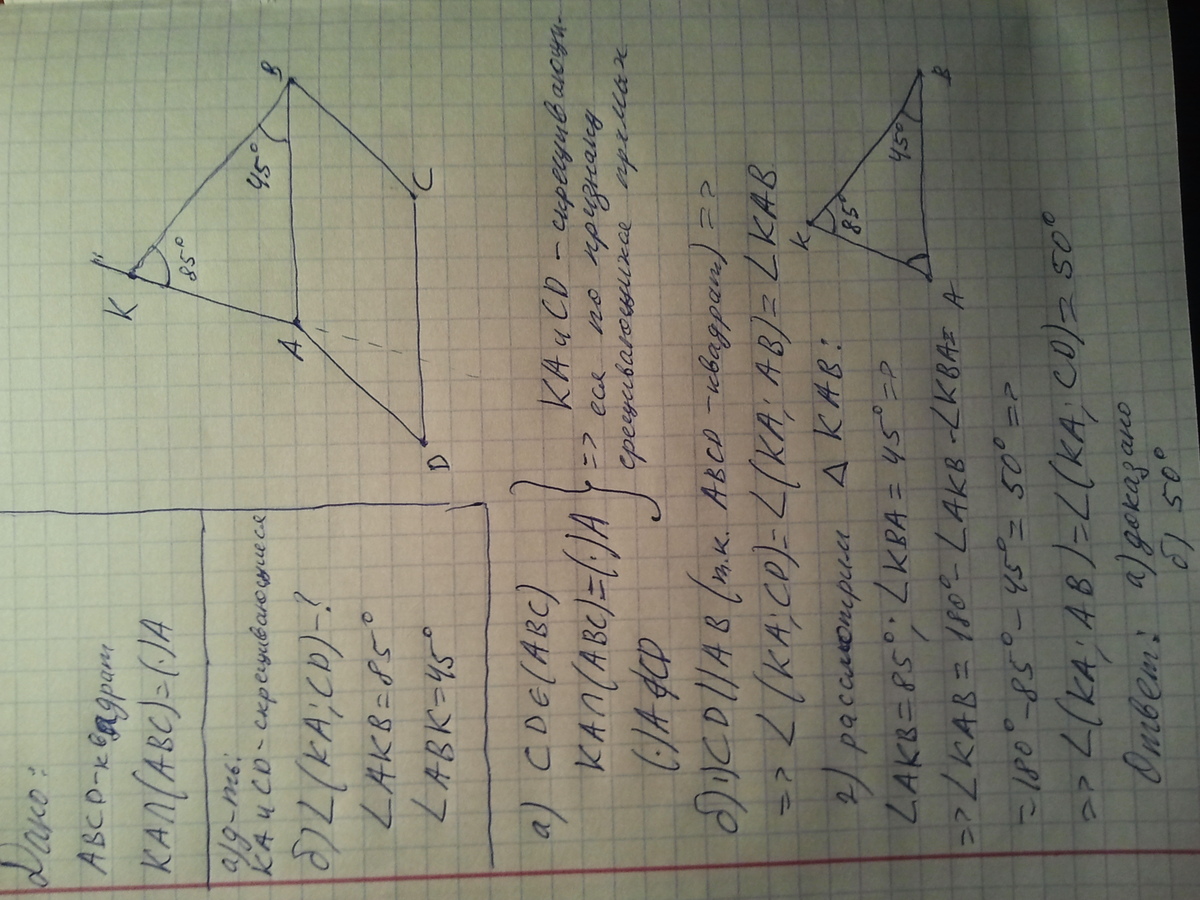 Дано:
ABCD-квадрат
KA∩(ABC)=(·)A
а) д-ть:
KA и CD-скрещивающиеся
б) ∠(KA;CD)-?
∠AKB=85°
∠ABK=45°
K
85°
45°
B
A
D
C
а) CD∈(ABC)
KA∩(ABC)=(·)A
(·)A∉CD
=>
KA и CD-скрещивающи-
еся по признаку
скрещивающихся прямых
б) 1) CD||AB (т.к. ABCD-квадрат) =>
=> ∠(KA;CD)=∠(KA;AB)=∠KAB
2) рассмотрим △KAB:
∠AKB=85°; ∠KBA=45° =>
=> ∠KAB=180°-∠AKB-∠KBA=
=180°-85°-45°=50° =>
=> ∠(KA;AB)=∠(KA;CD)=50°
K
85°
45°
A
B
Ответ: а) доказано
б) 50°